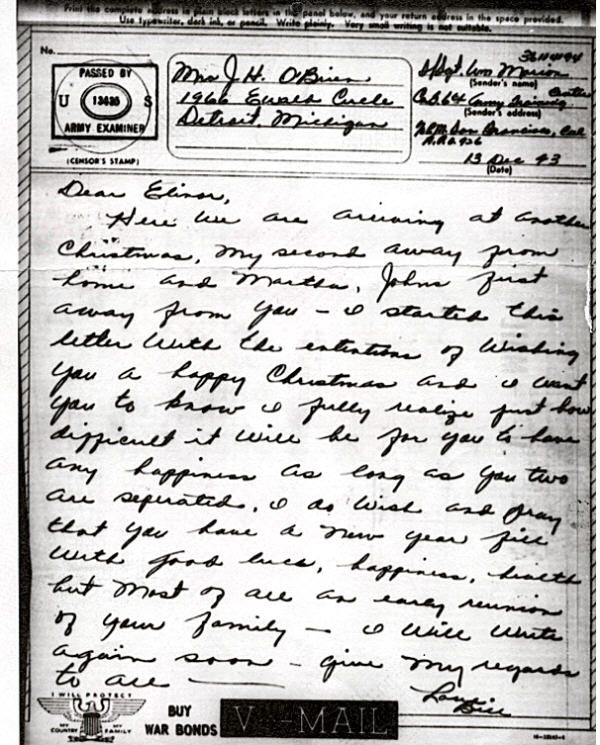 Print the complete address in plain block letters in the panel below, and your return address in the space provided.
Use typewriter, dark ink, or pencil. Write plainly. Very small writing is not suitable.
No.
PASSED BY
U 13435 S
ARMY EXAMINER
(CENSOR'S STAMP)
Mrs J. H. O'Brien
1966 Ewald Circle
Detroit, Michigan
S/Sgt. Wm Marion
(Sender's name)
Co. B. 64 Army Training Center
(Sender's address)
San Francisco, Cal
13 Dec 43
(Date)
Dear Elinor,
Here we are arriving at another
Christmas, My second away from
home and Martha, Johns first
away from you – I started this
letter with the intentions of Wishing
you a happy Christmas and I want
you to know I fully realize just how
difficult it will be for you to have
any happiness as long as you two
are seperated. I do Wish and pray
that you have a New year fill
With good luck, happiness, health
but Most of all an early reunion
of your family – I will Write
again soon – give My regards
to all
Love
Bill
I WILL PROTECT
MY COUNTRY MY FAMILY
BUY
WAR BONDS
V - MAIL